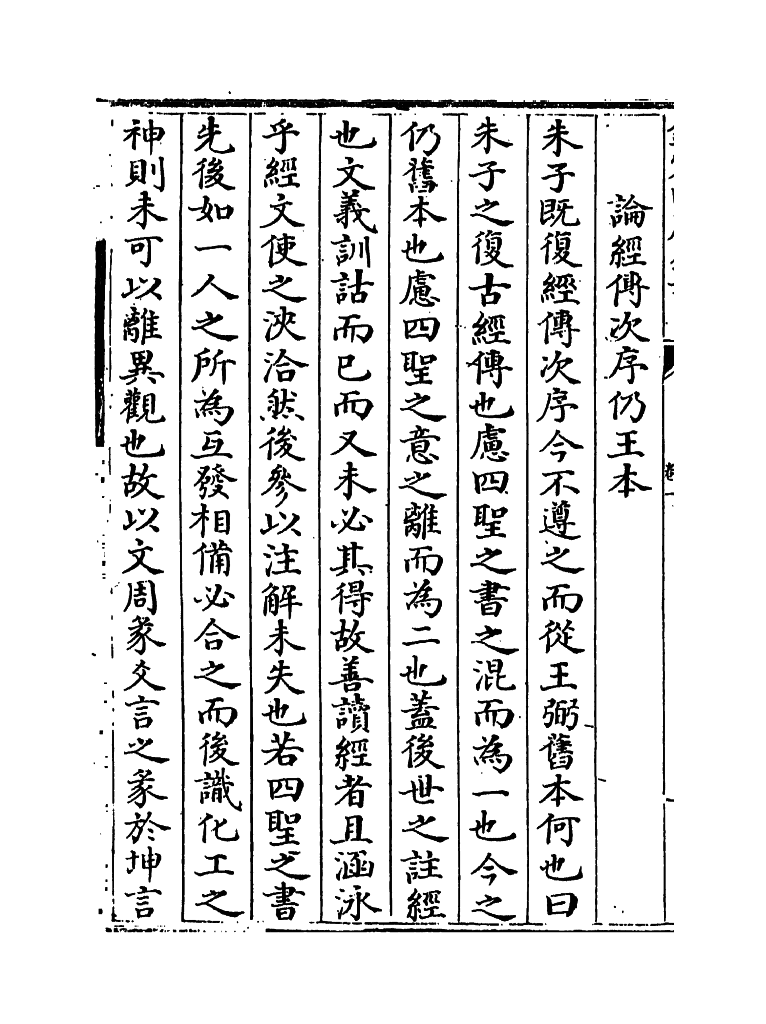 論經傳次序仍王本
朱子既復經傳次序今不遵之而從王弼舊本何也曰
朱子之復古經傳也慮四聖之書之混而為一也今之
仍舊本也慮四聖之意之離而為二也蓋後世之註經
也文義訓詁而已而又未必其得故善讀經者且涵泳
乎經文使之浹洽然後參以注解未失也若四聖之書
先後如一人之所為互發相備必合之而後識化工之
神則未可以離異觀也故以文周彖爻言之彖於坤言